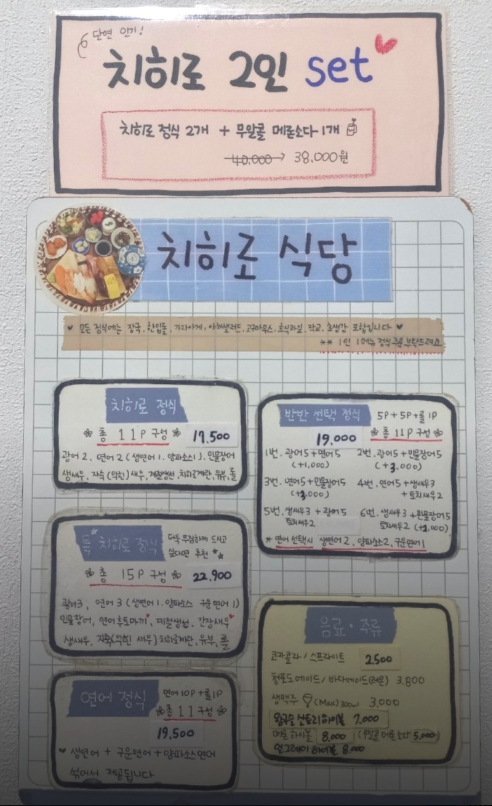 단연 인기!
치히로 2인 set
치히로 정식 2개 + 무알콜 메론소다 1개
40,000 → 38,000원
치히로 식당
모든 정식에는 장국,
포함입니다
** 1인 1메뉴 정식 주문 부탁드려요
치히로 정식
총 11P 구성 17,500
광어 2, 연어 2 (생연어 1, 양파소스 1), 민물장어
생새우, 자숙(익힌) 새우, 계절생선, 치히로계란, 유부, 롤
반반 선택 정식 5P+5P+롤 1P
19,000 총 11P 구성
1번. 광어5 + 연어5 (+1,000)
2번. 광어5 + 민물장어5 (+3,000)
3번. 연어5 + 민물장어5
4번. 연어5 + 생새우3 + 토치새우2
5번. 생새우3 + 광어5 토치새우2
6번. 생새우3 + 민물장어5 토치새우2
※ 연어 선택시 생연어 2, 양파소스2, 구운연어1
특 치히로 정식
총 15P 구성 22,900
광어3, 연어 3 (생연어 1, 양파소스 구운연어 1)
민물장어, 연어후토마끼, 계절생선, 간장새우
생새우, 자숙(익힌 새우) 치히로계란, 유부, 롤
연어 정식 연어 10P + 롤 1P
총 11 구성
19,500
생연어 + 구운연어 + 양파소스연어
섞어서 제공됩니다
음료·주류
코카콜라 / 스프라이트 2,500
청포도에이드 / 3,800
생맥주 300ml 3,000
산토리하이볼 7,000
하이볼 8,000 5,000
하이볼 8,000